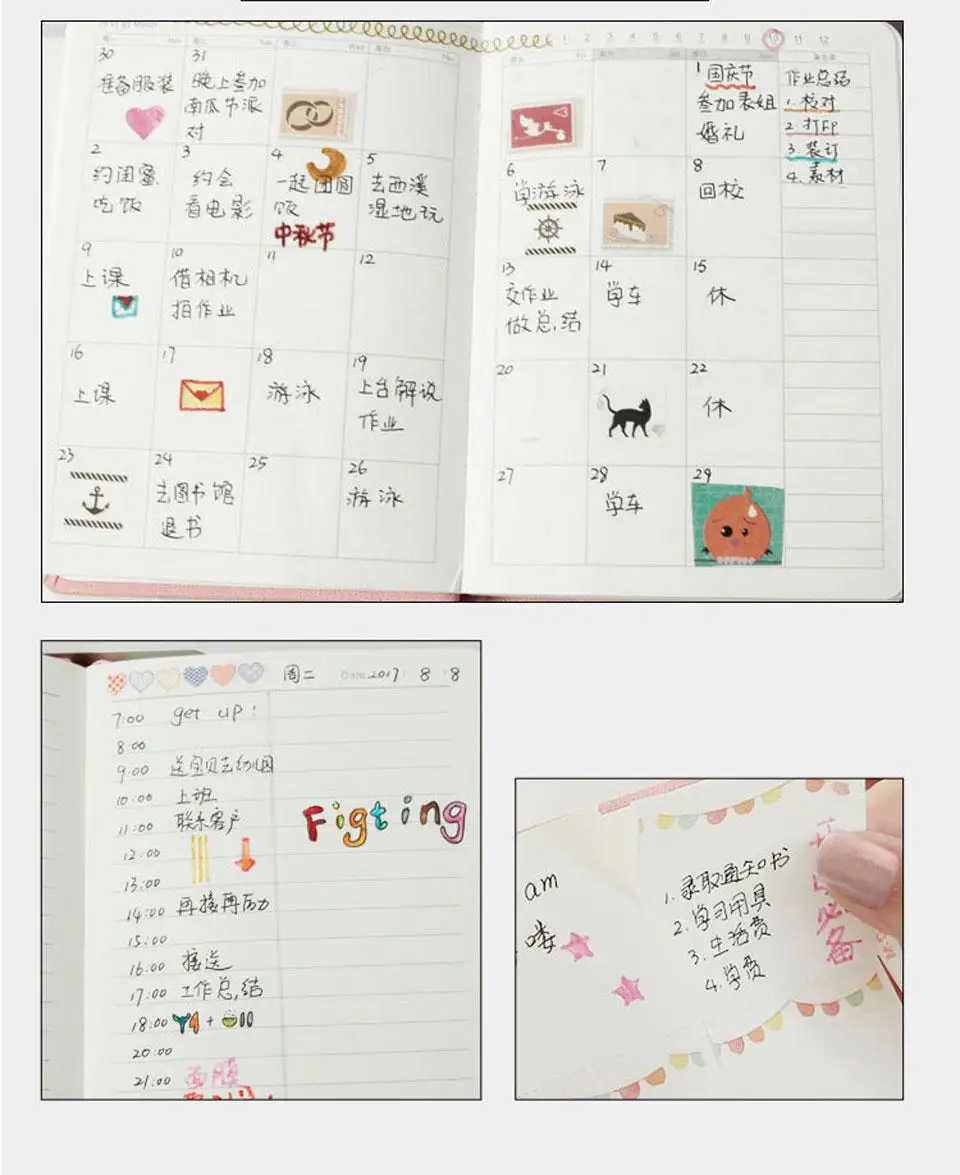 周一 Mon 周二 Tue 周三 Wed 周四 Thu
30
准备服装
31
晚上参加
南瓜节派
对
2
约闺蜜
吃饭
3
约会
看电影
4
一起团圆
饭
中秋节
5
去西溪
湿地玩
9
上课
10
借相机
拍作业
11
12
16
上课
17
18
游泳
19
上台解说
作业
23
24
去图书馆
退书
25
26
游泳
1 2 3 4 5 6 7 8 9 10 11 12
周五 Fri 周六 Sat 周日 Sun 备忘录
1 国庆节
参加表姐
婚礼
作业总结
1. 核对
2 打EP
3. 装订
4. 素材
6
学游泳
7
8
回校
13
交作业
做总结
14
学车
15
休
20
21
22
休
27
28
学车
29
周二 Date 2017 / 8 / 8
7:00 get up!
8:00
9:00 送宝贝去幼儿园
10:00 上班
11:00 联系客户
12:00
13:00
14:00 再接再厉
15:00
16:00 接送
17:00 工作总结
18:00 +
20:00
21:00 面膜
Figting
am
喽
1. 录取通知书
2. 学习用具
3. 生活费
4. 学费
必
备